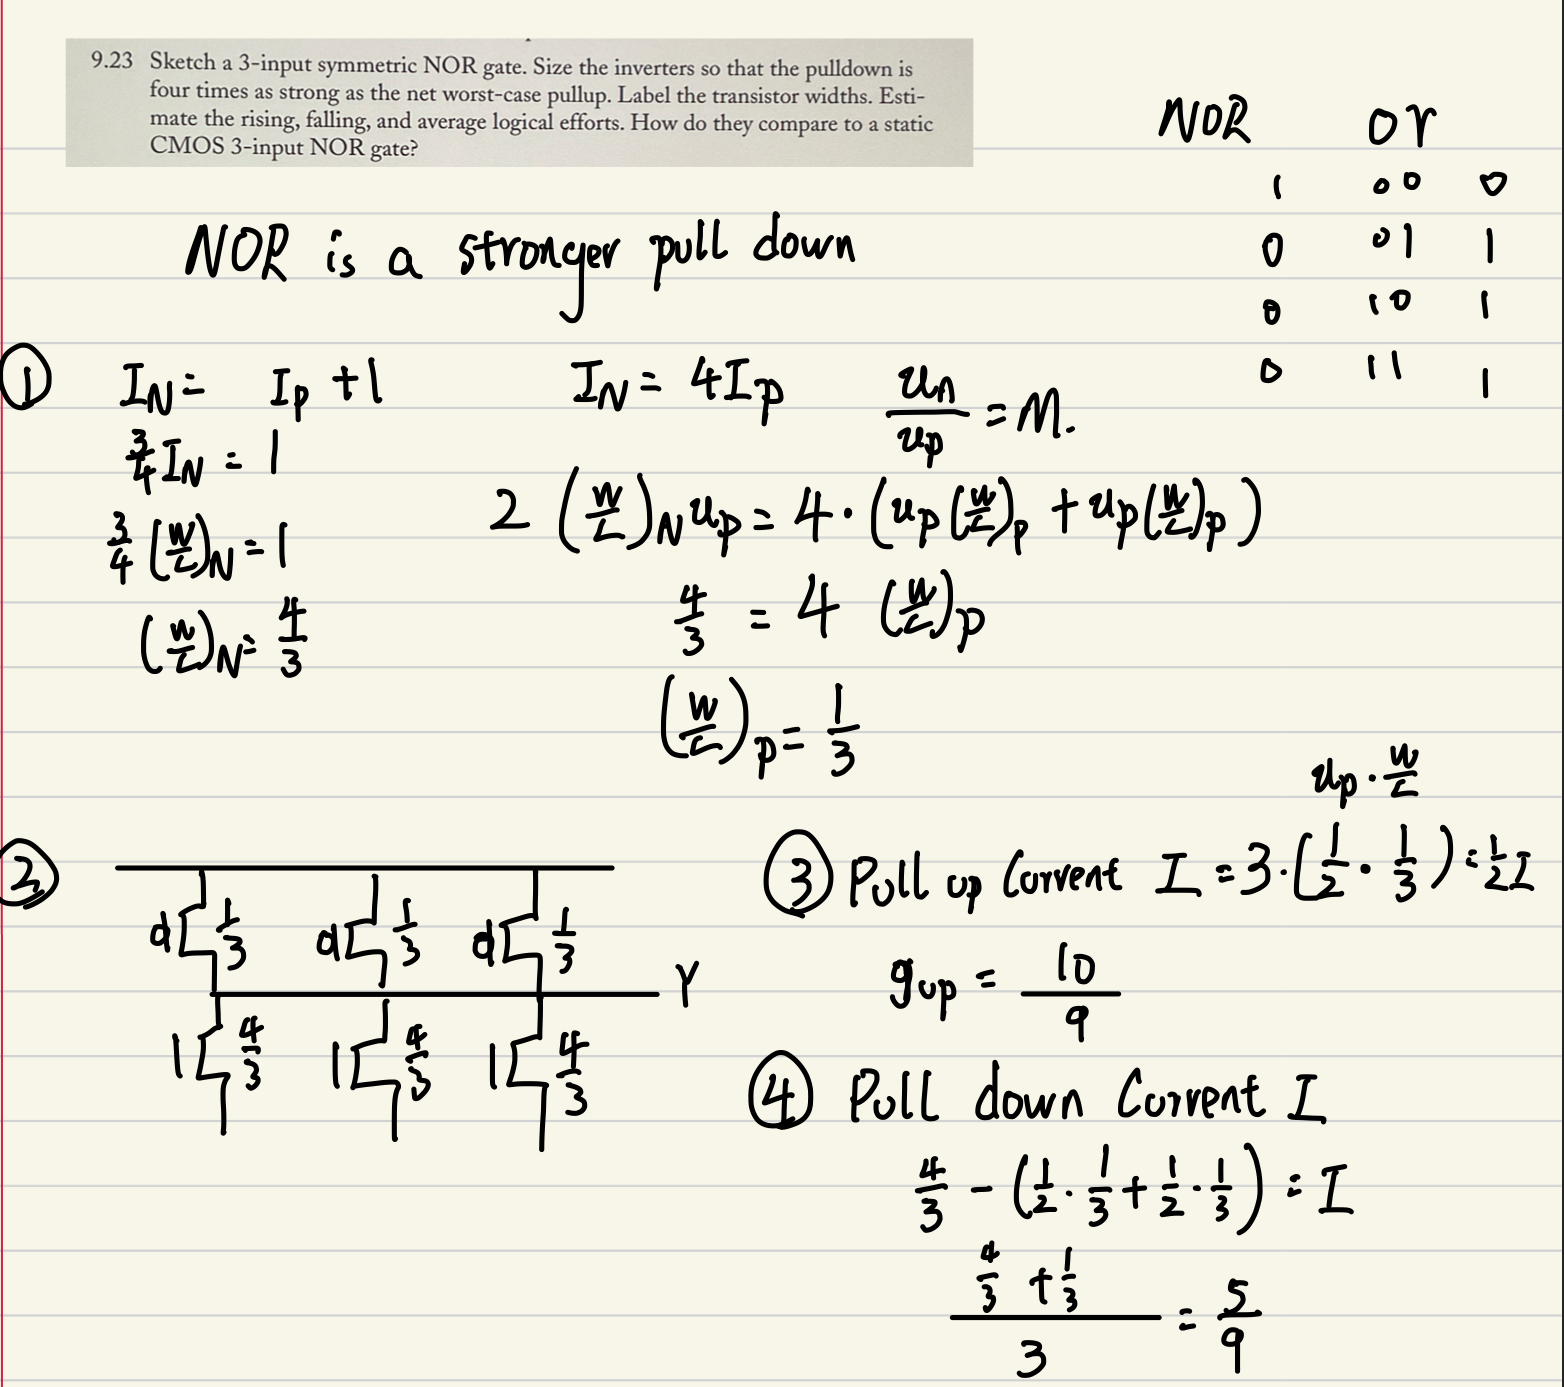 9.23 Sketch a 3-input symmetric NOR gate. Size the inverters so that the pulldown is
four times as strong as the net worst-case pullup. Label the transistor widths. Esti-
mate the rising, falling, and average logical efforts. How do they compare to a static
CMOS 3-input NOR gate?
NOR or
1 00 0
0 01 1
0 10 1
0 11 1
NOR is a stronger pull down
① I_N = I_p + 1
3/4 I_N = 1
3/4 (W/L)_N = 1
(W/L)_N = 4/3
I_N = 4I_p un/up = M.
2 (W/L)_N up = 4·(up(W/L)_p + up(W/L)_p)
4/3 = 4 (W/L)_p
(W/L)_p = 1/3
②
1/3 1/3 1/3
Y
4/3 4/3 4/3
up · W/L
③ Pull up Current I = 3·(1/2 · 1/3) = 1/2 I
gup = 10/9
④ Pull down Current I
4/3 - (1/2 · 1/3 + 1/2 · 1/3) = I
(4/3 + 1/3)/3 = 5/9